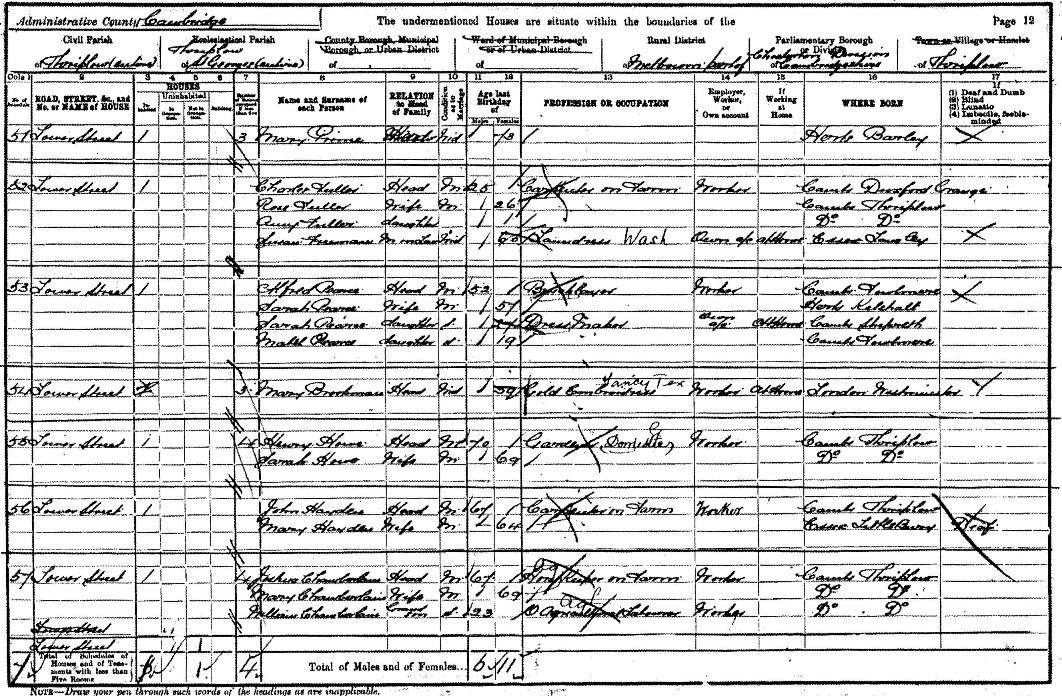 Administrative County Cambridge The undermentioned Houses are situate within the boundaries of the Page 12
Civil Parish Ecclesiastical Parish County Borough, Municipal Borough, or Urban District Ward of Municipal Borough or of Urban District Rural District Parliamentary Borough or Division Town or Village or Hamlet
of Thriplow (entire) of Thriplow St George (entire) of of of Melbourn of Cambridgeshire of Thriplow
Cols 1 2 3 4 5 6 7 8 9 10 11 12 13 14 15 16 17
ROAD, STREET, &c., and No. or NAME of HOUSE HOUSES Uninhabited Name and Surname of each Person RELATION to Head of Family Condition as to Marriage Age last Birthday of Males Females PROFESSION OR OCCUPATION Employer, Worker, or Own account If Working at Home WHERE BORN If (1) Deaf and Dumb (2) Blind (3) Lunatic (4) Imbecile, feeble-minded
51 Lower Street 1 3 Mary Prime Head Wid 73 Herts Barley
52 Lower Street 1 Charles Fuller Head M 25 Carpenter on Farm Worker Cambs Duxford Grange
Rose Fuller Wife M 26 Cambs Thriplow
Amy Fuller daughter 1 Do Do
Susan Freeman M in Law Wid Laundress Wash Own a/c At Home Essex
53 Lower Street 1 Alfred Pearce Head M 53 Bricklayer Worker Cambs Fowlmere
Sarah Pearce Wife M 51 Herts Kelshall
Sarah Pearce daughter s. Dress Maker Own a/c At Home Cambs Shepreth
Mabel Pearce daughter s. 19 Cambs Fowlmere
54 Lower Street 3 Mary Brookman Head Wid 59 Gold Embroideress Fancy Tex Worker At Home London Westminster
55 Lower Street 1 4 Henry Howe Head M 70 Gardener Domestic Worker Cambs Thriplow
Sarah Howe Wife M 69 Do Do
56 Lower Street 1 John Hayden Head M 67 Carpenter on Farm Worker Cambs Thriplow
Mary Hayden Wife M 64 Essex Deaf
57 Lower Street 1 4 Joshua Chamberlain Head M 67 on Farm Worker Cambs Thriplow
Mary Chamberlain Wife M 69 Do Do
William Chamberlain s. 23 Ag Agricultural Labourer Worker Do Do
Lower Street
Total of Schedules of Houses and of Tenements with less than Five Rooms 7 6 1 4 Total of Males and of Females... 6 11
NOTE—Draw your pen through such words of the headings as are inapplicable.